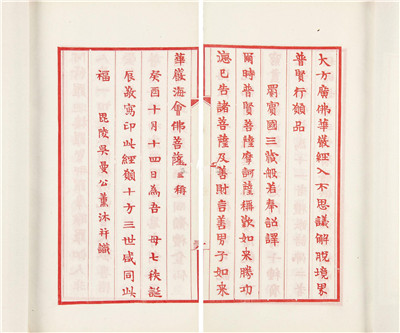 大方廣佛華嚴經入不思議解脫境界
普賢行願品
罽賓國三藏般若奉詔譯
爾時普賢菩薩摩訶薩稱歎如來勝功
德已告諸菩薩及善財言善男子如來
華嚴海會佛菩薩 三稱
癸酉十月十四日為吾 母七秩誕
辰敬寫印此經願十方三世咸同此
福 毘陵吳曼公董沐拜識